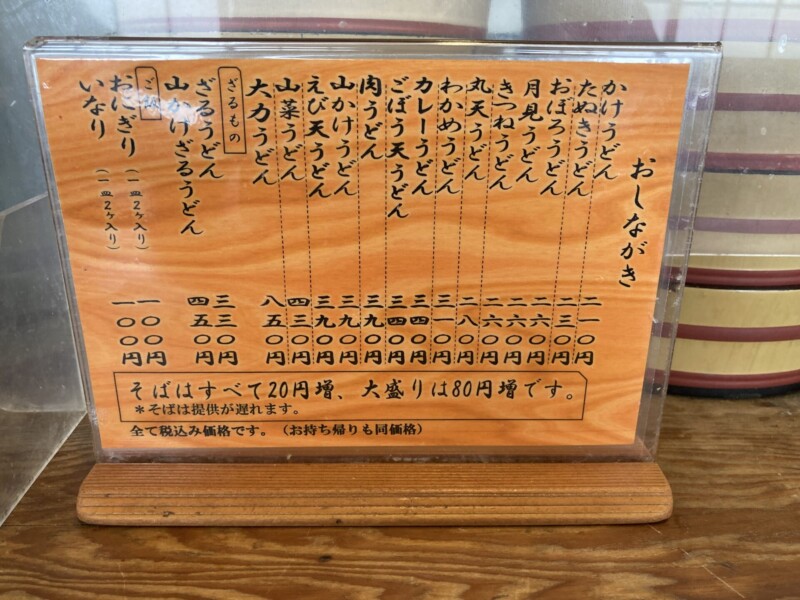 おしながき
かけうどん 二一〇円
たぬきうどん 二三〇円
おぼろうどん 二六〇円
月見うどん 二六〇円
きつねうどん 二六〇円
丸天うどん 二八〇円
わかめうどん 三一〇円
カレーうどん 三四〇円
ごぼう天うどん 三四〇円
肉うどん 三九〇円
山かけうどん 三九〇円
えび天うどん 三九〇円
山菜うどん 四三〇円
大力うどん 八五〇円
ざるもの
ざるうどん 三三〇円
山かけざるうどん 四五〇円
ご飯
おにぎり（一皿2ヶ入り） 一〇〇円
いなり（一皿2ヶ入り） 一〇〇円
そばはすべて20円増、大盛りは80円増です。
＊そばは提供が遅れます。
全て税込み価格です。（お持ち帰りも同価格）